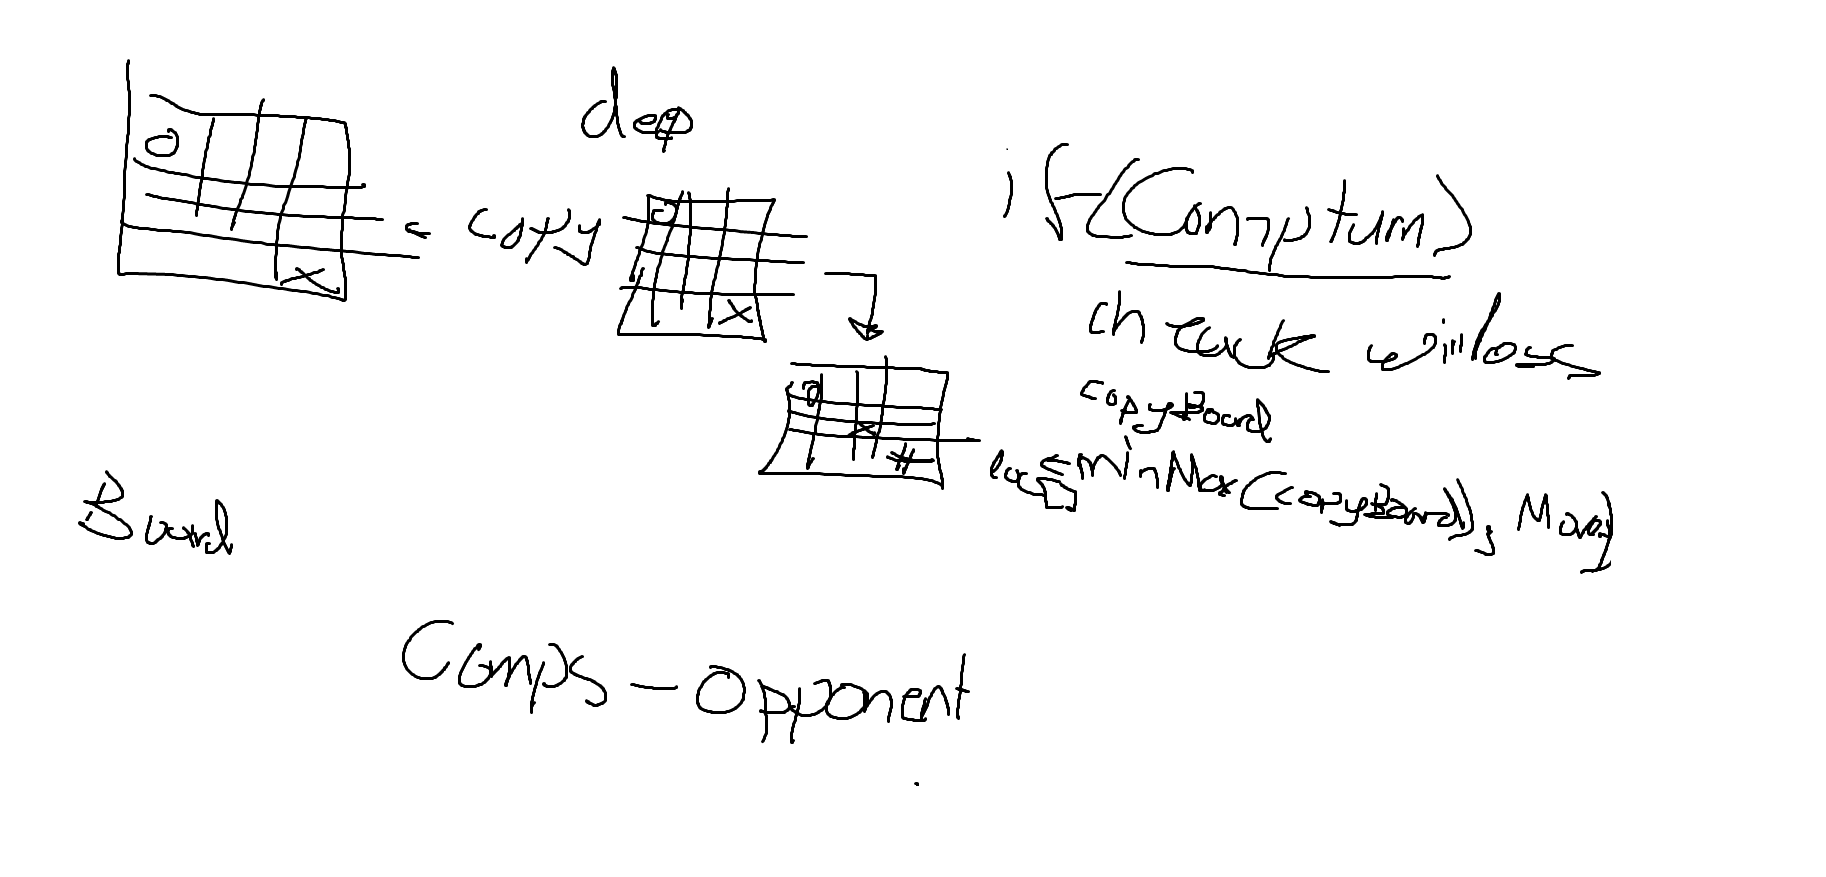 dep
O
X
< copy
O
X
O
X
if(Compturn)
check win loss
copyBoard
loc[] = minMax(copyBoard), Move)
Board
Comps - Opponent